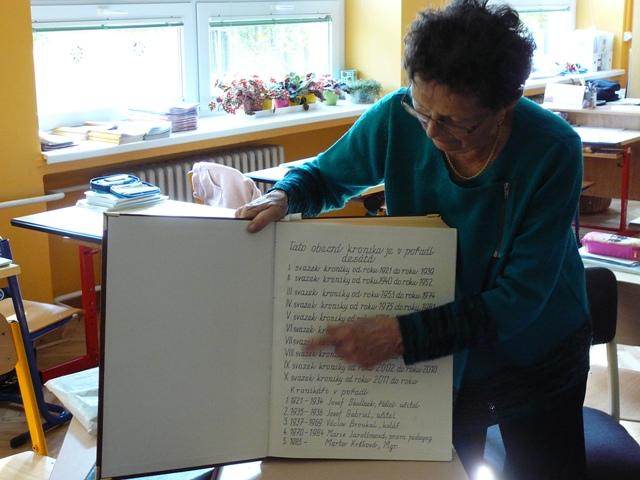 Tato obecní kronika je v pořadí
desátá
I. svazek kroniky od roku 1921 do roku 1939
II. svazek kroniky od roku 1940 do roku 1952
III. svazek kroniky od roku 1953 do roku 1974
IV. svazek kroniky od roku 1975 do roku
V. svazek kroniky od roku
VI. svazek
VII. svazek
VIII. svazek
IX. svazek kroniky od roku 2002 do roku 2010
X. svazek kroniky od roku 2011 do roku
Kronikáři v pořadí
1. 1921 - 1934 Josef učitel
2. 1935 - 1936 Josef Gabriel, učitel
3. 1937 - 1969 Václav Broukal, kolář
4. 1970 - 1984 Marie
5. 1985 - Mgr.